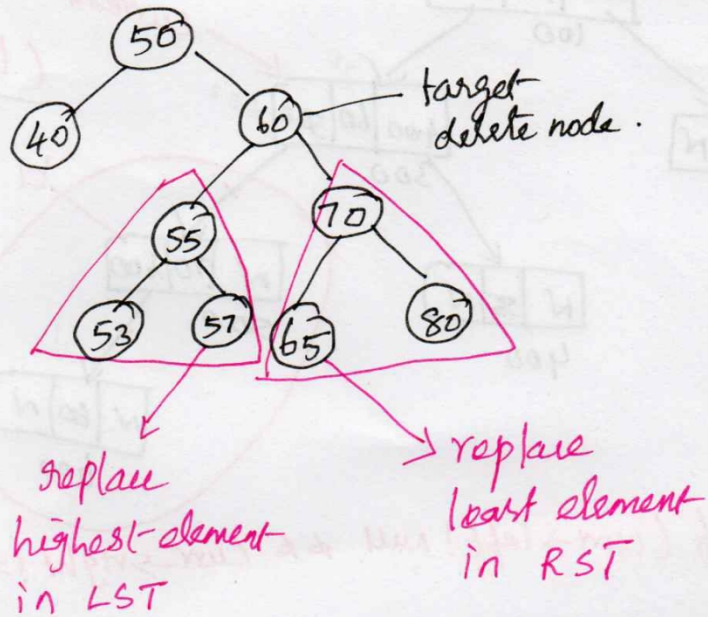 50
40
60
target
delete node.
55
70
53
57
65
80
replace
highest element
in LST
replace
least element
in RST